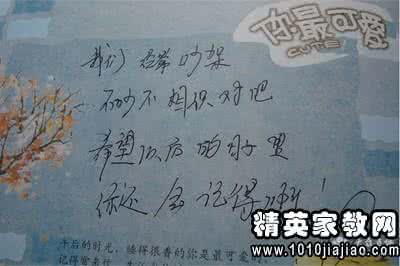 你最可爱
CUTE
我们经常吵架
不吵不相识对吧
希望以后的日子里
你还会记得我！
午后的时光，睡得很香的你是最可爱
精英家教网
www.1010jiajiao.com